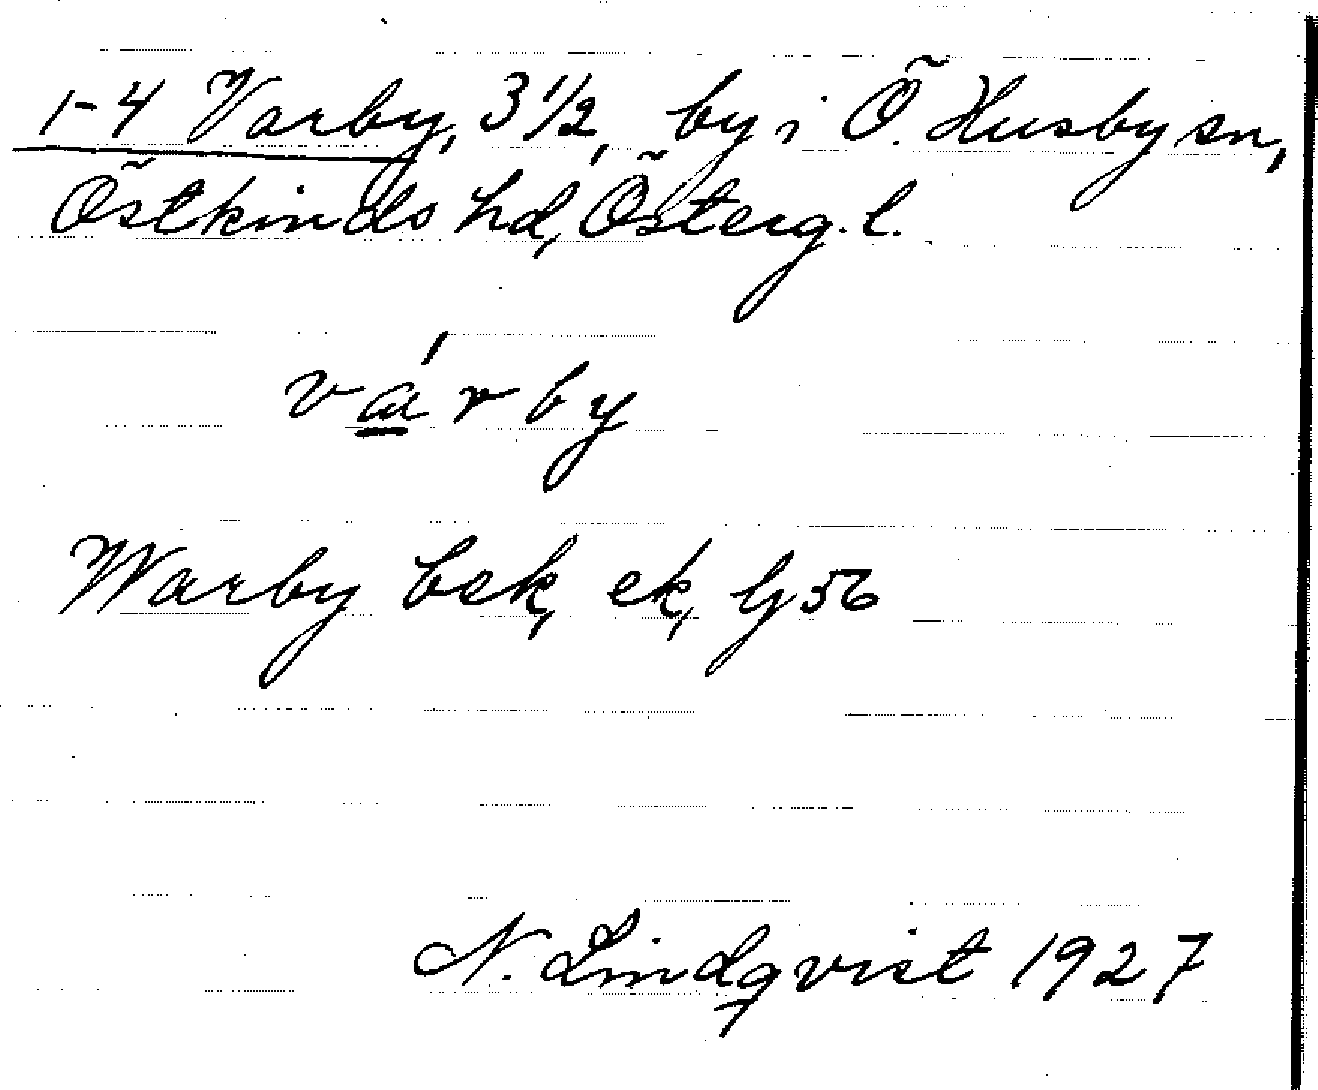 1-4 Varby, 3 1/2, by i Ö. Husby sn,
Östkinds hd, Österg. l.
várby
Warby bek, ek, Gj 56
N. Lindqvist 1927